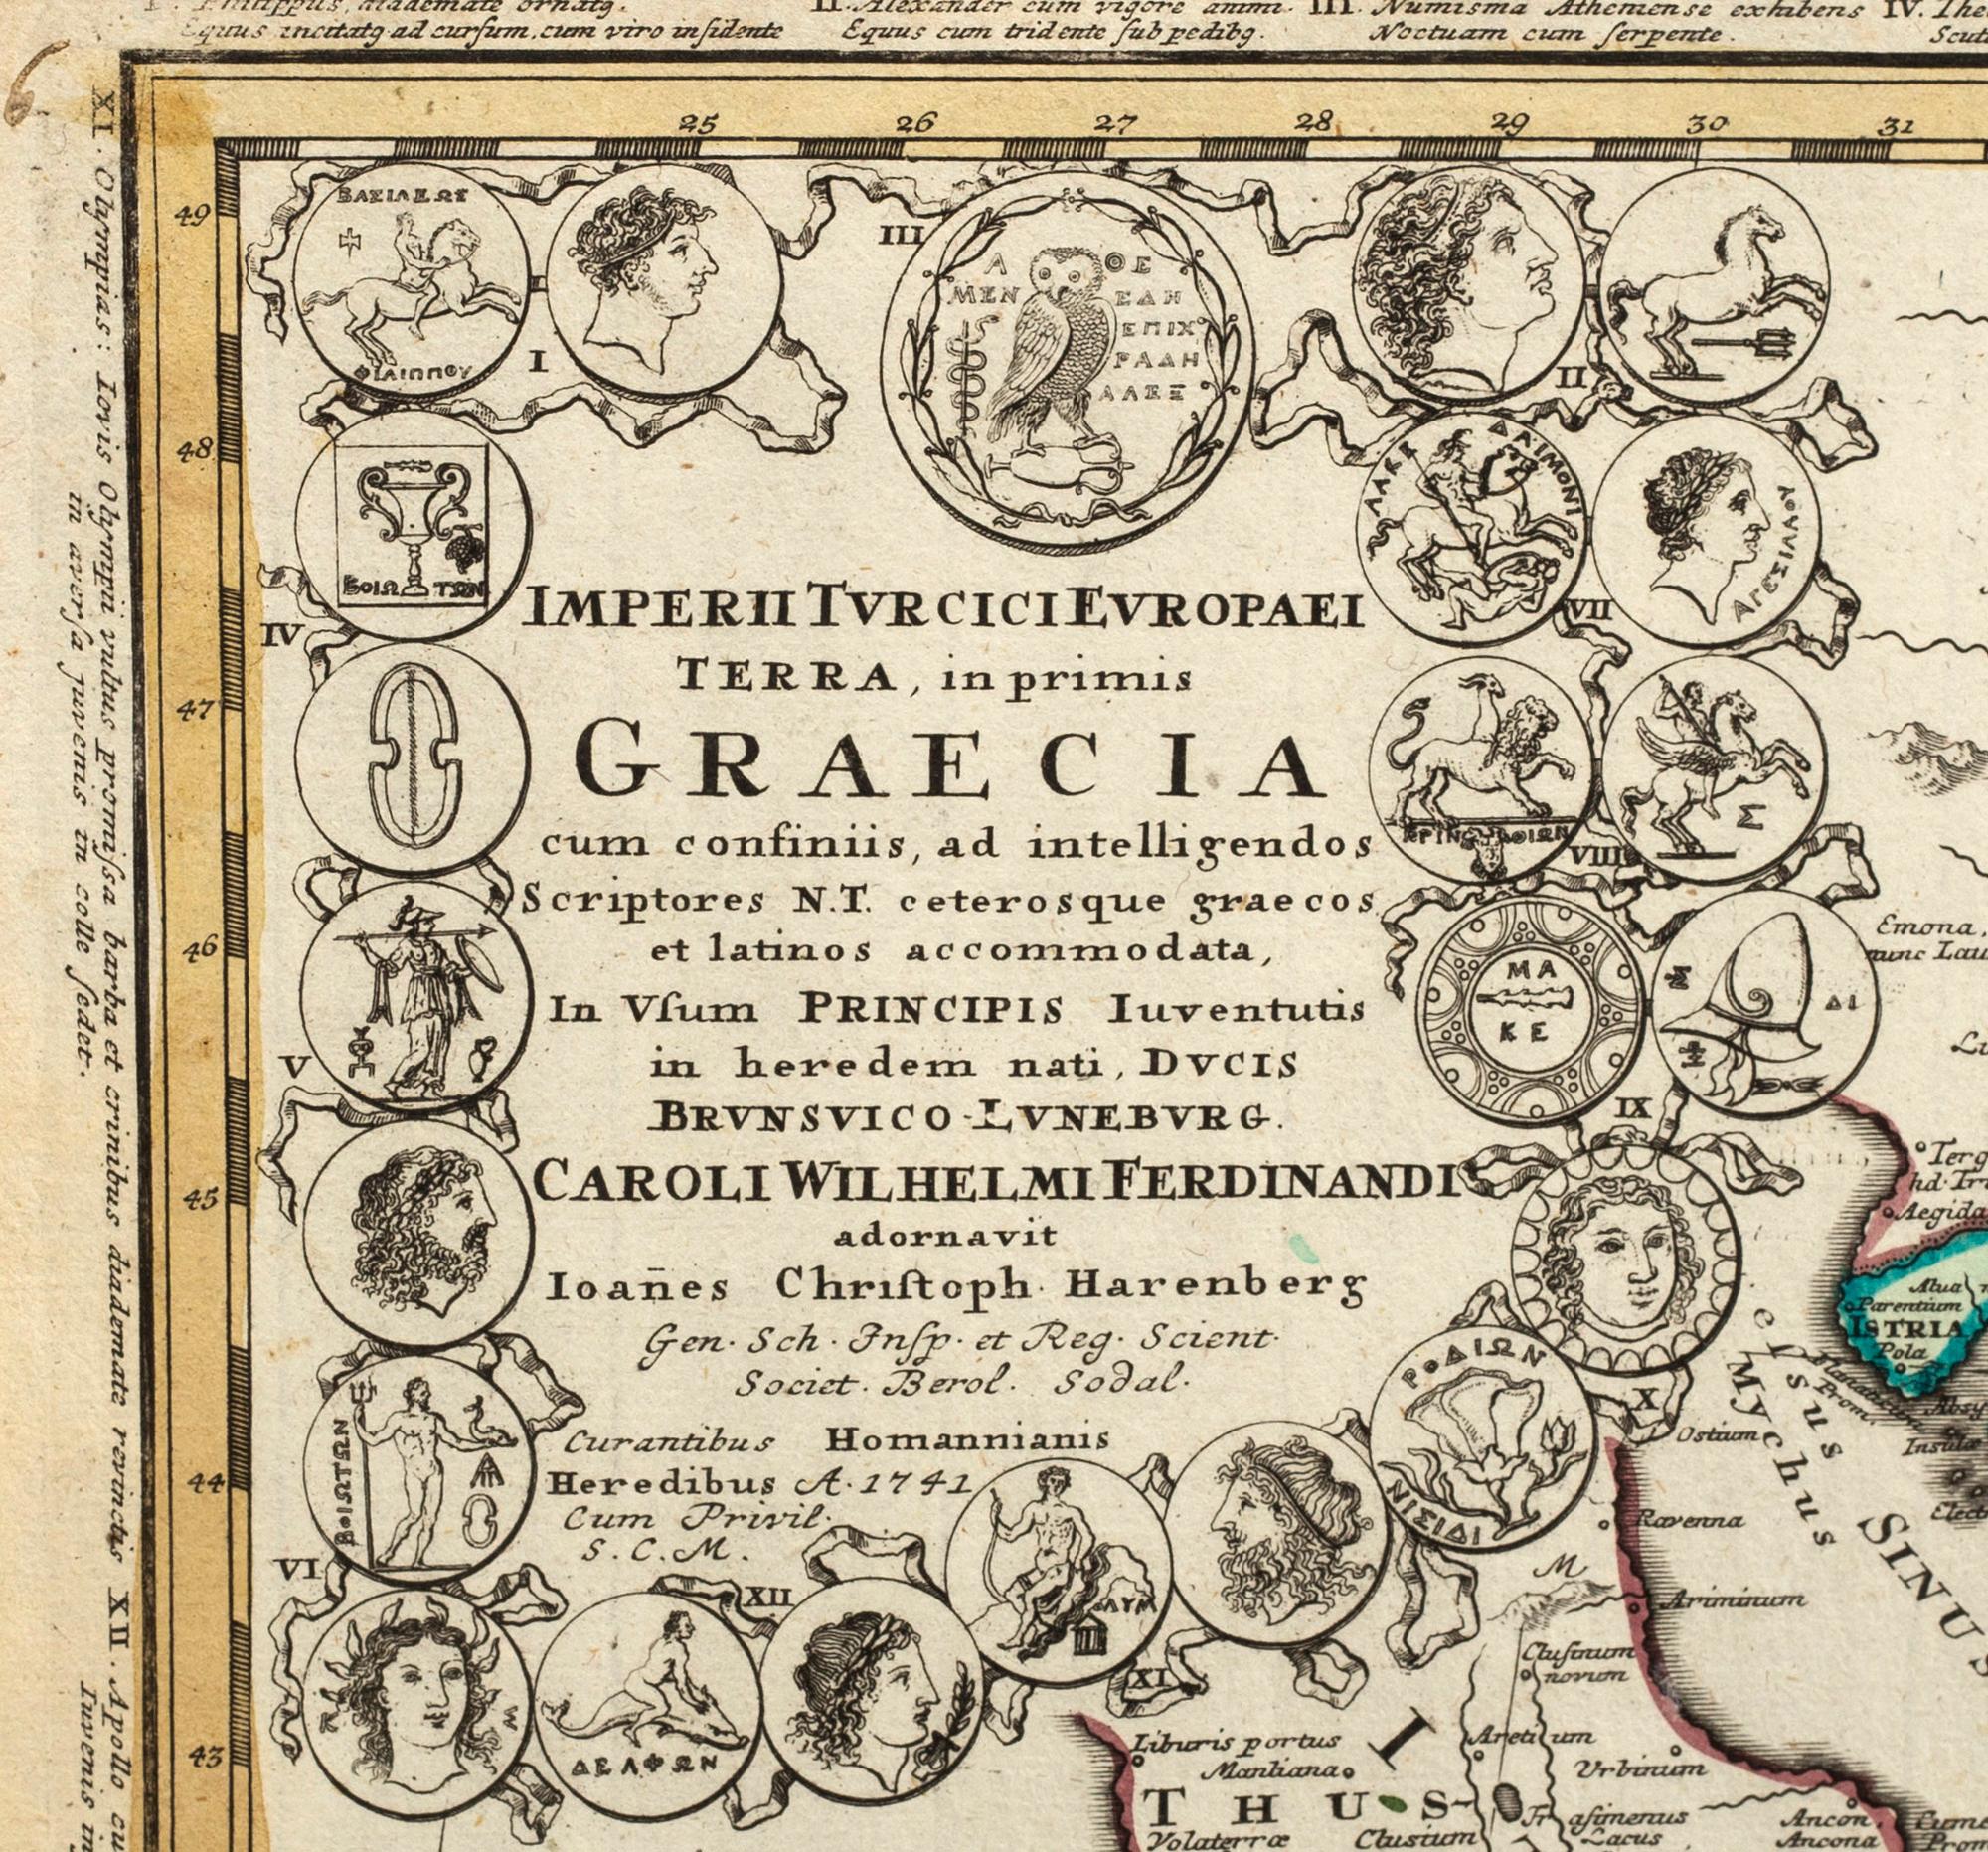 Philippus, diademate ornatq.
Equus incitatq ad cursum, cum viro insidente
II. Alexander cum vigore animi.
Equus cum tridente sub pedibq.
III. Numisma Atheniense exhibens
Noctuam cum serpente.
IV. The
Scut
XI. Olympias: Iovis Olympii vultus promissa barba et crinibus diademate revinctis
in aversa juvenis in colle sedet.
XII. Apollo cu
Iuvenis in
25 26 27 28 29 30 31
49
48
47
46
45
44
43
ΒΑΣΙΛΕΩΣ
ΦΙΛΙΠΠΟΥ
I
III
Α ΘΕ
ΜΕΝ ΕΔΗ
ΕΠΙΧ
ΡΑΔΗ
ΑΛΕΞ
II
ΒΟΙΩ ΤΩΝ
IV
ΛΑΚΕ ΔΑΙΜΟΝΙ
ΑΓΕΣΙΛΑΟΥ
VII
Σ
VIII
V
ΜΑ
ΚΕ
ΔΙ
IX
ΒΟΙΩΤΩΝ
VI
X
ΡΟΔΙΩΝ
ΝΙΣΙΔΙ
ΛΥΜ
XI
XII
ΔΕΛΦΩΝ
IMPERII TVRCICI EVROPAEI
TERRA, in primis
GRAECIA
cum confiniis, ad intelligendos
Scriptores N.T. ceterosque graecos
et latinos accommodata,
In Vſum PRINCIPIS Iuventutis
in heredem nati, DVCIS
BRVNSVICO-LVNEBVRG.
CAROLI WILHELMI FERDINANDI
adornavit
Ioan̄es Chriſtoph Harenberg
Gen. Sch. Inſp. et Reg. Scient.
Societ. Berol. Sodal.
Curantibus Homannianis
Heredibus A. 1741
Cum Privil.
S. C. M.
Emona,
nunc Lau
Terg
Aegida
Parentium
ISTRIA
Pola
Prom.
Absy
Insulæ
Electr
Mychus
SINUS
Ostium
Ravenna
M
Ariminum
Clusinum
novum
I
Liburis portus
Manliana
Aretium
Urbinum
THUS
Trasimenus
Lacus
Ancon,
Ancona
Cume
Prom
Volaterræ
Clusium